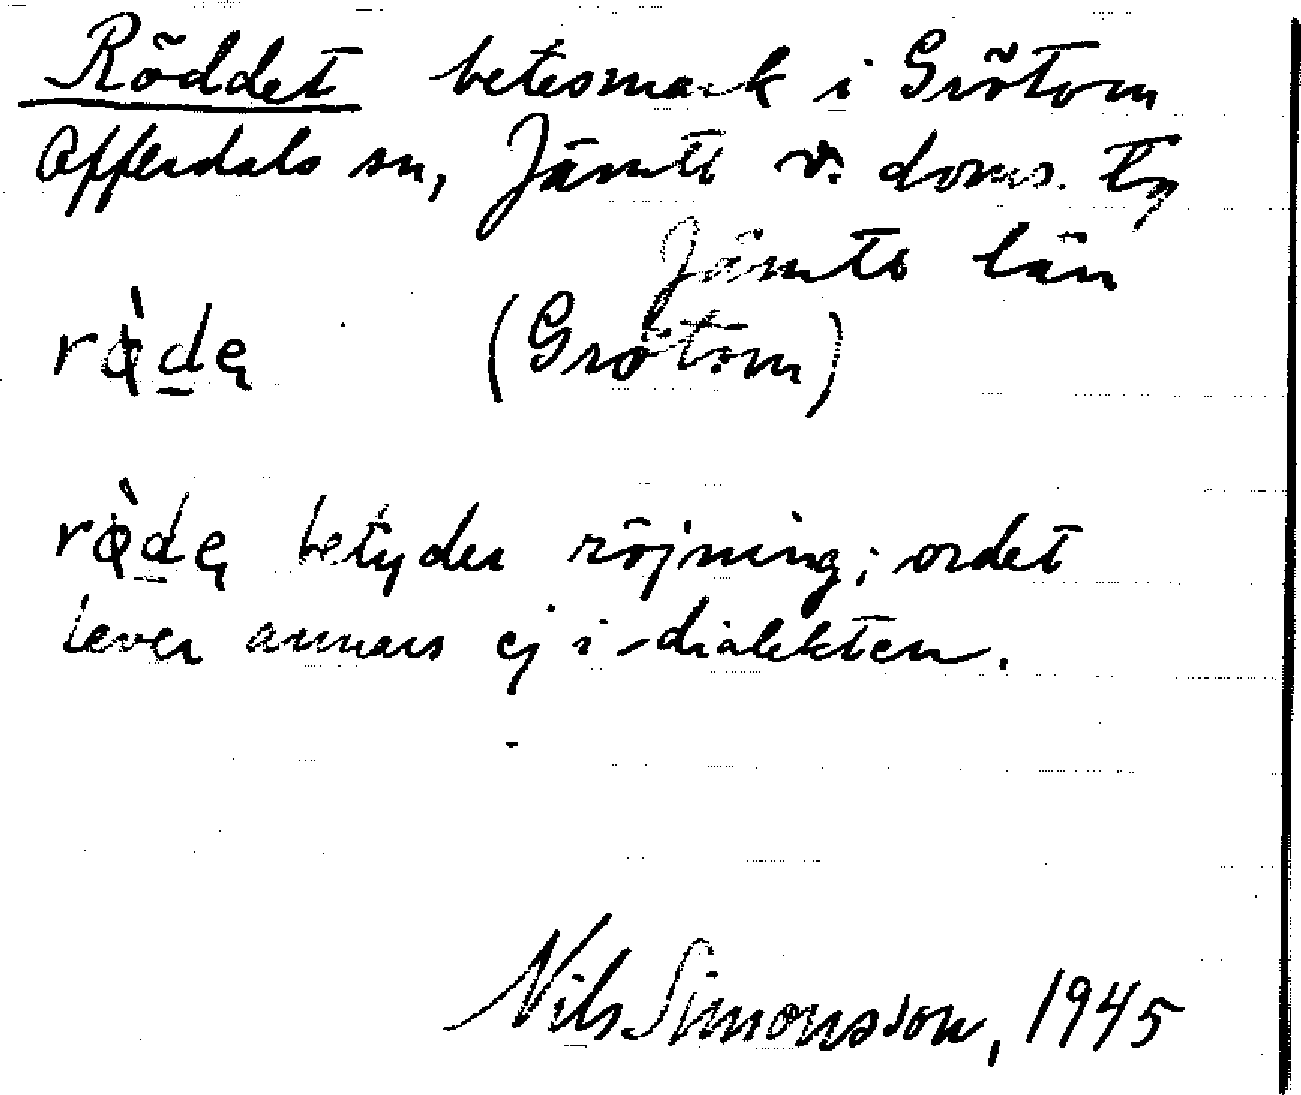 Röddet betesmark i Grötom
Offerdals sn, Jämtl v. doms. tg
Jämtl län
rø̀dę (Grötom)
rø̀dę betyder röjning; ordet
lever annars ej i dialekten.
Nils Simonsson, 1945